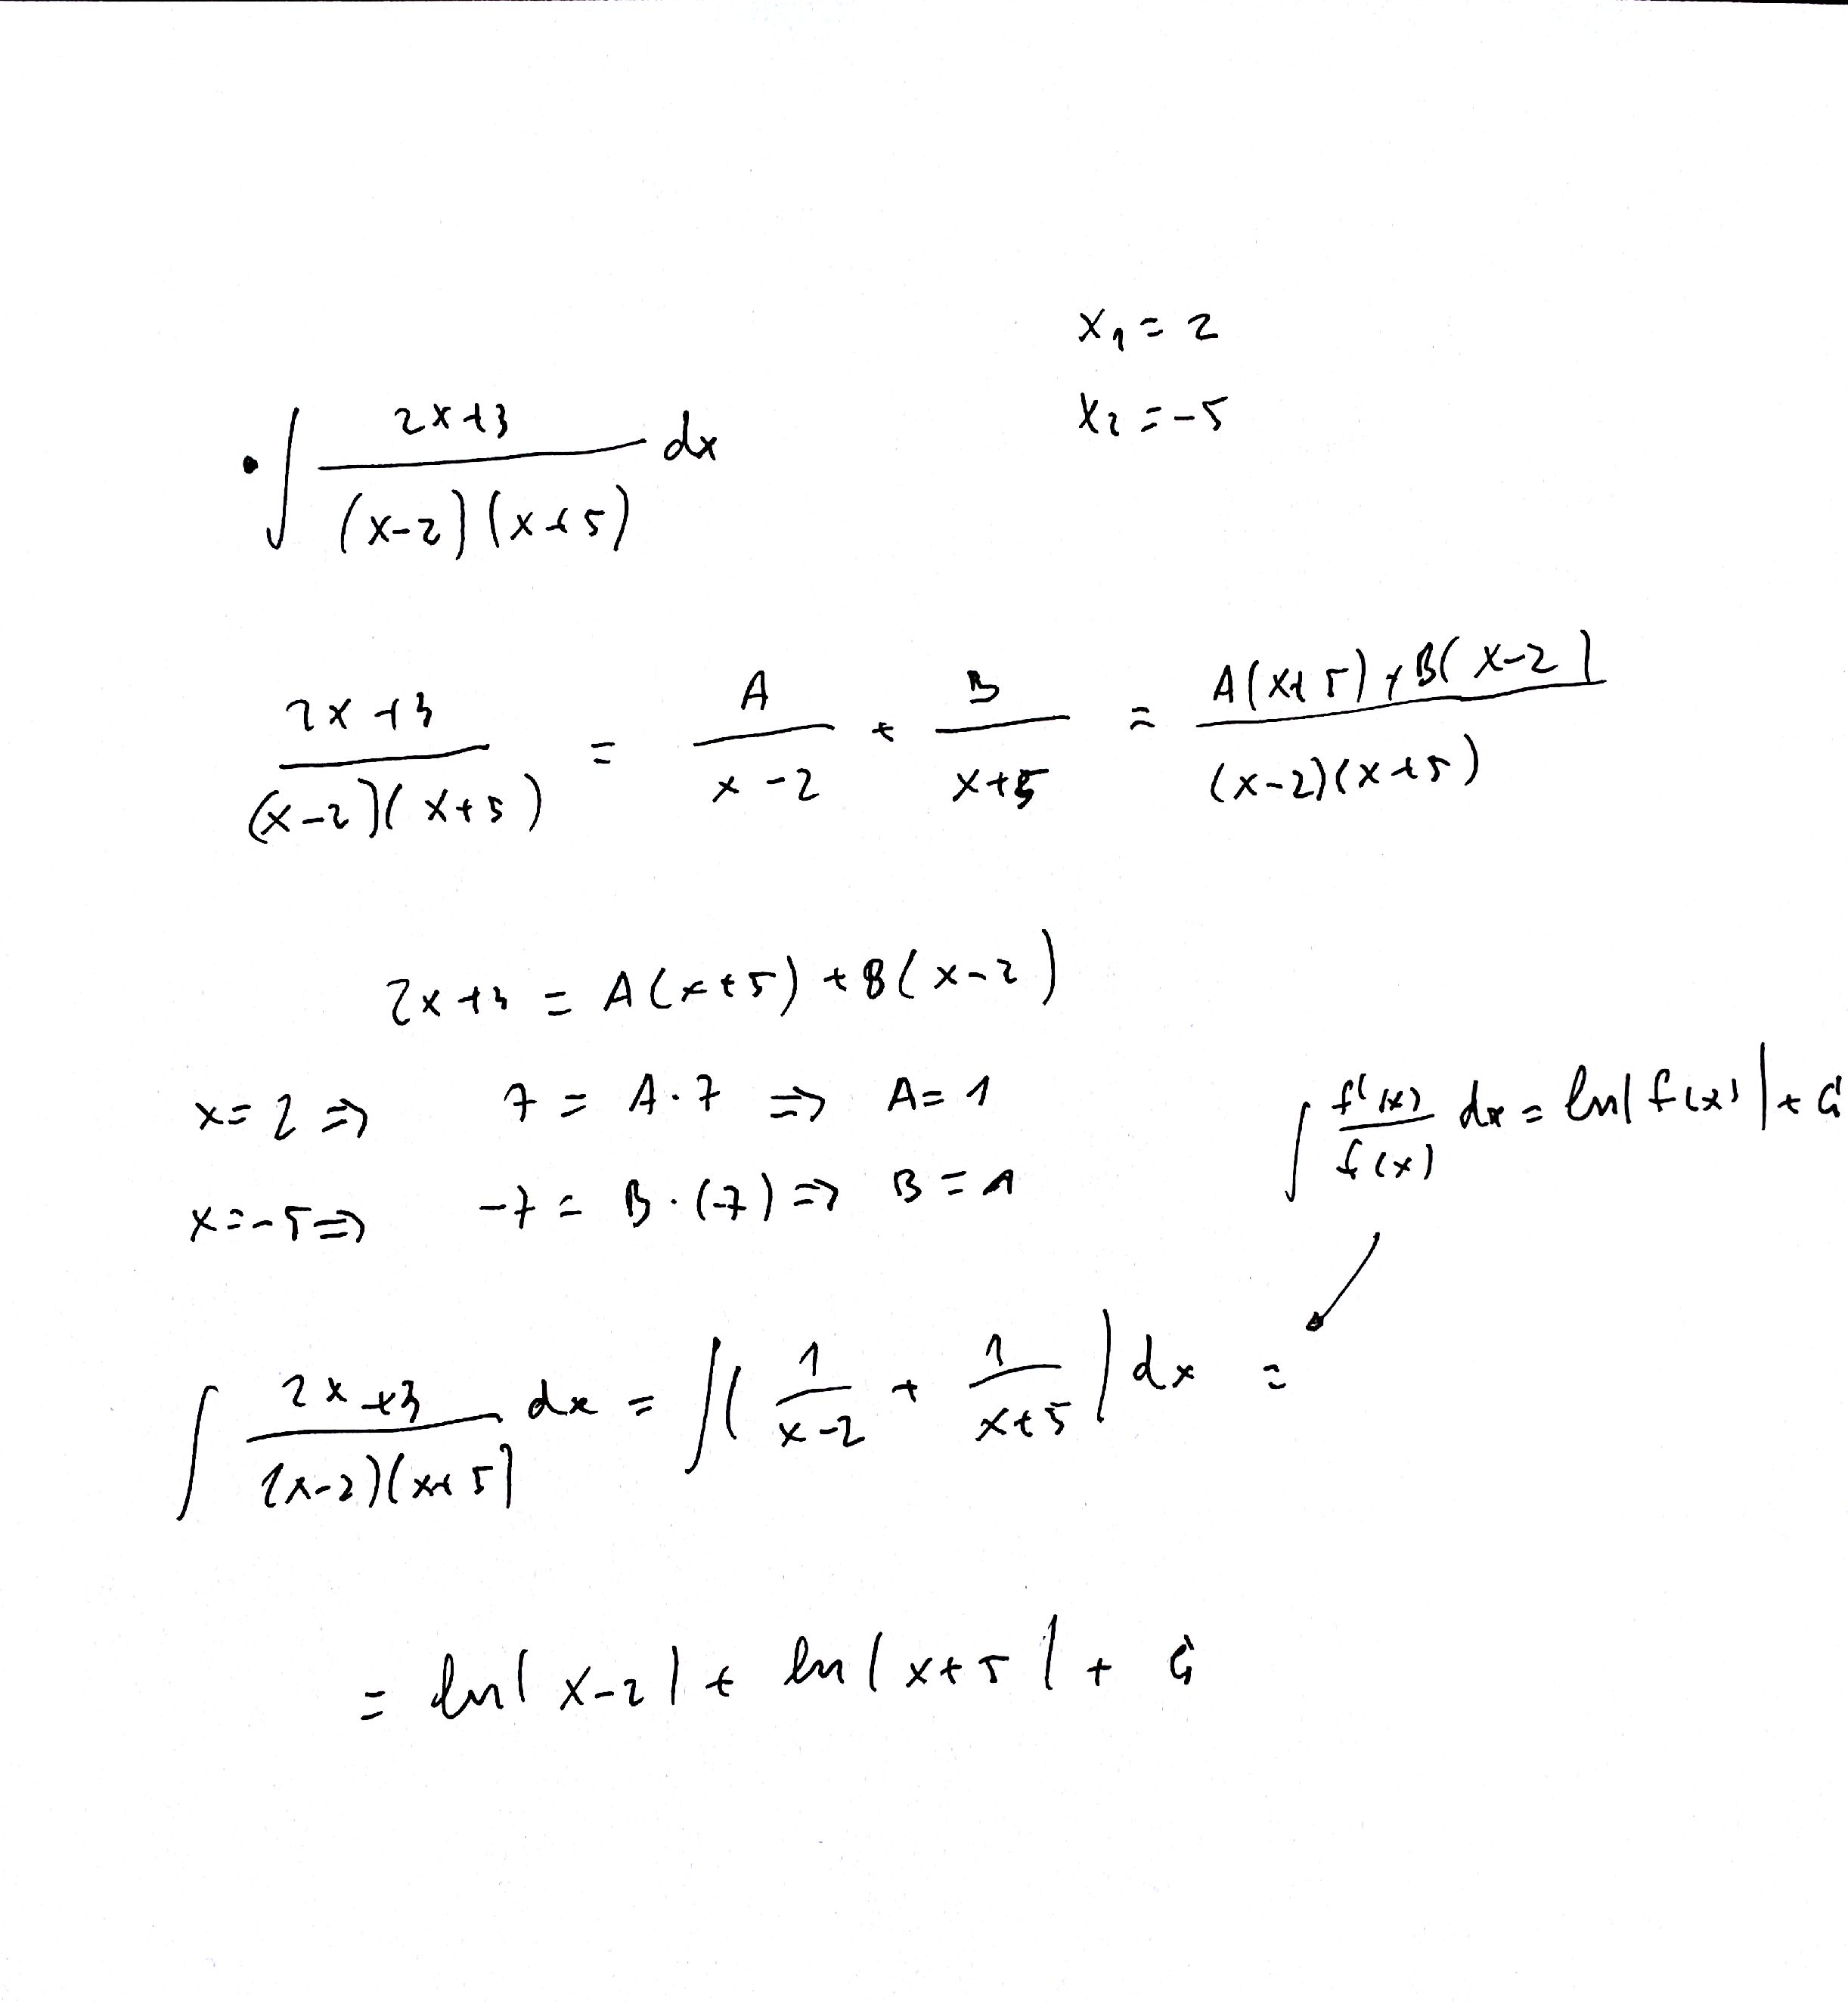 x₁ = 2
x₂ = -5
• ∫ (2x+3)/((x-2)(x+5)) dx
(2x+3)/((x-2)(x+5)) = A/(x-2) + B/(x+5) = (A(x+5)+B(x-2))/((x-2)(x+5))
2x+3 = A(x+5)+B(x-2)
x=2 ⇒ 7 = A·7 ⇒ A=1
∫ f'(x)/f(x) dx = ln|f(x)|+C
x=-5 ⇒ -7 = B·(-7) ⇒ B=1
∫ (2x+3)/((x-2)(x+5)) dx = ∫(1/(x-2) + 1/(x+5))dx =
= ln|x-2| + ln|x+5| + C